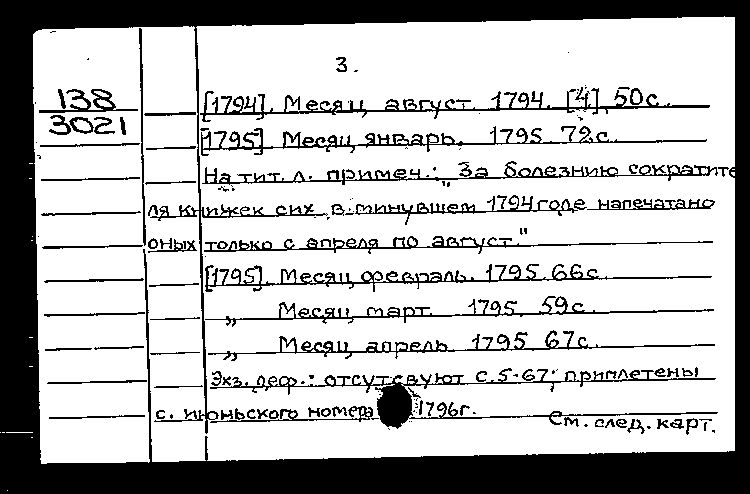 3.
138
3021
[1794]. Месяц август 1794. [4], 50с.
[1795] Месяц январь. 1795. 72с.
На тит. л. примеч.: „За болезнию сократите
ля книжек сих в минувшем 1794 годе напечатано
оных только с апреля по август."
[1795]. Месяц февраль. 1795. 66с.
„ Месяц март. 1795. 59с.
„ Месяц апрель 1795 67с.
Экз. деф.: отсутсвуют с.5-67; приплетены
с. июньского номера 1796г.
См. след. карт.